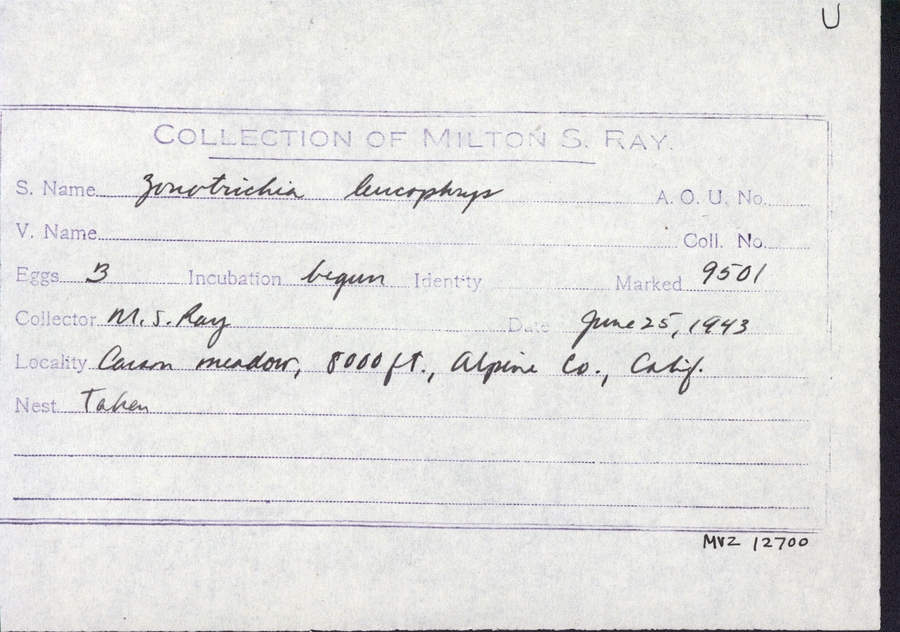 U
COLLECTION OF MILTON S. RAY.
S. Name Zonotrichia leucophrys A. O. U. No.
V. Name Coll. No.
Eggs 3 Incubation begun Identity Marked 9501
Collector M. S. Ray Date June 25, 1943
Locality Carson meadow, 8000 ft., Alpine Co., Calif.
Nest Taken
MVZ 12700